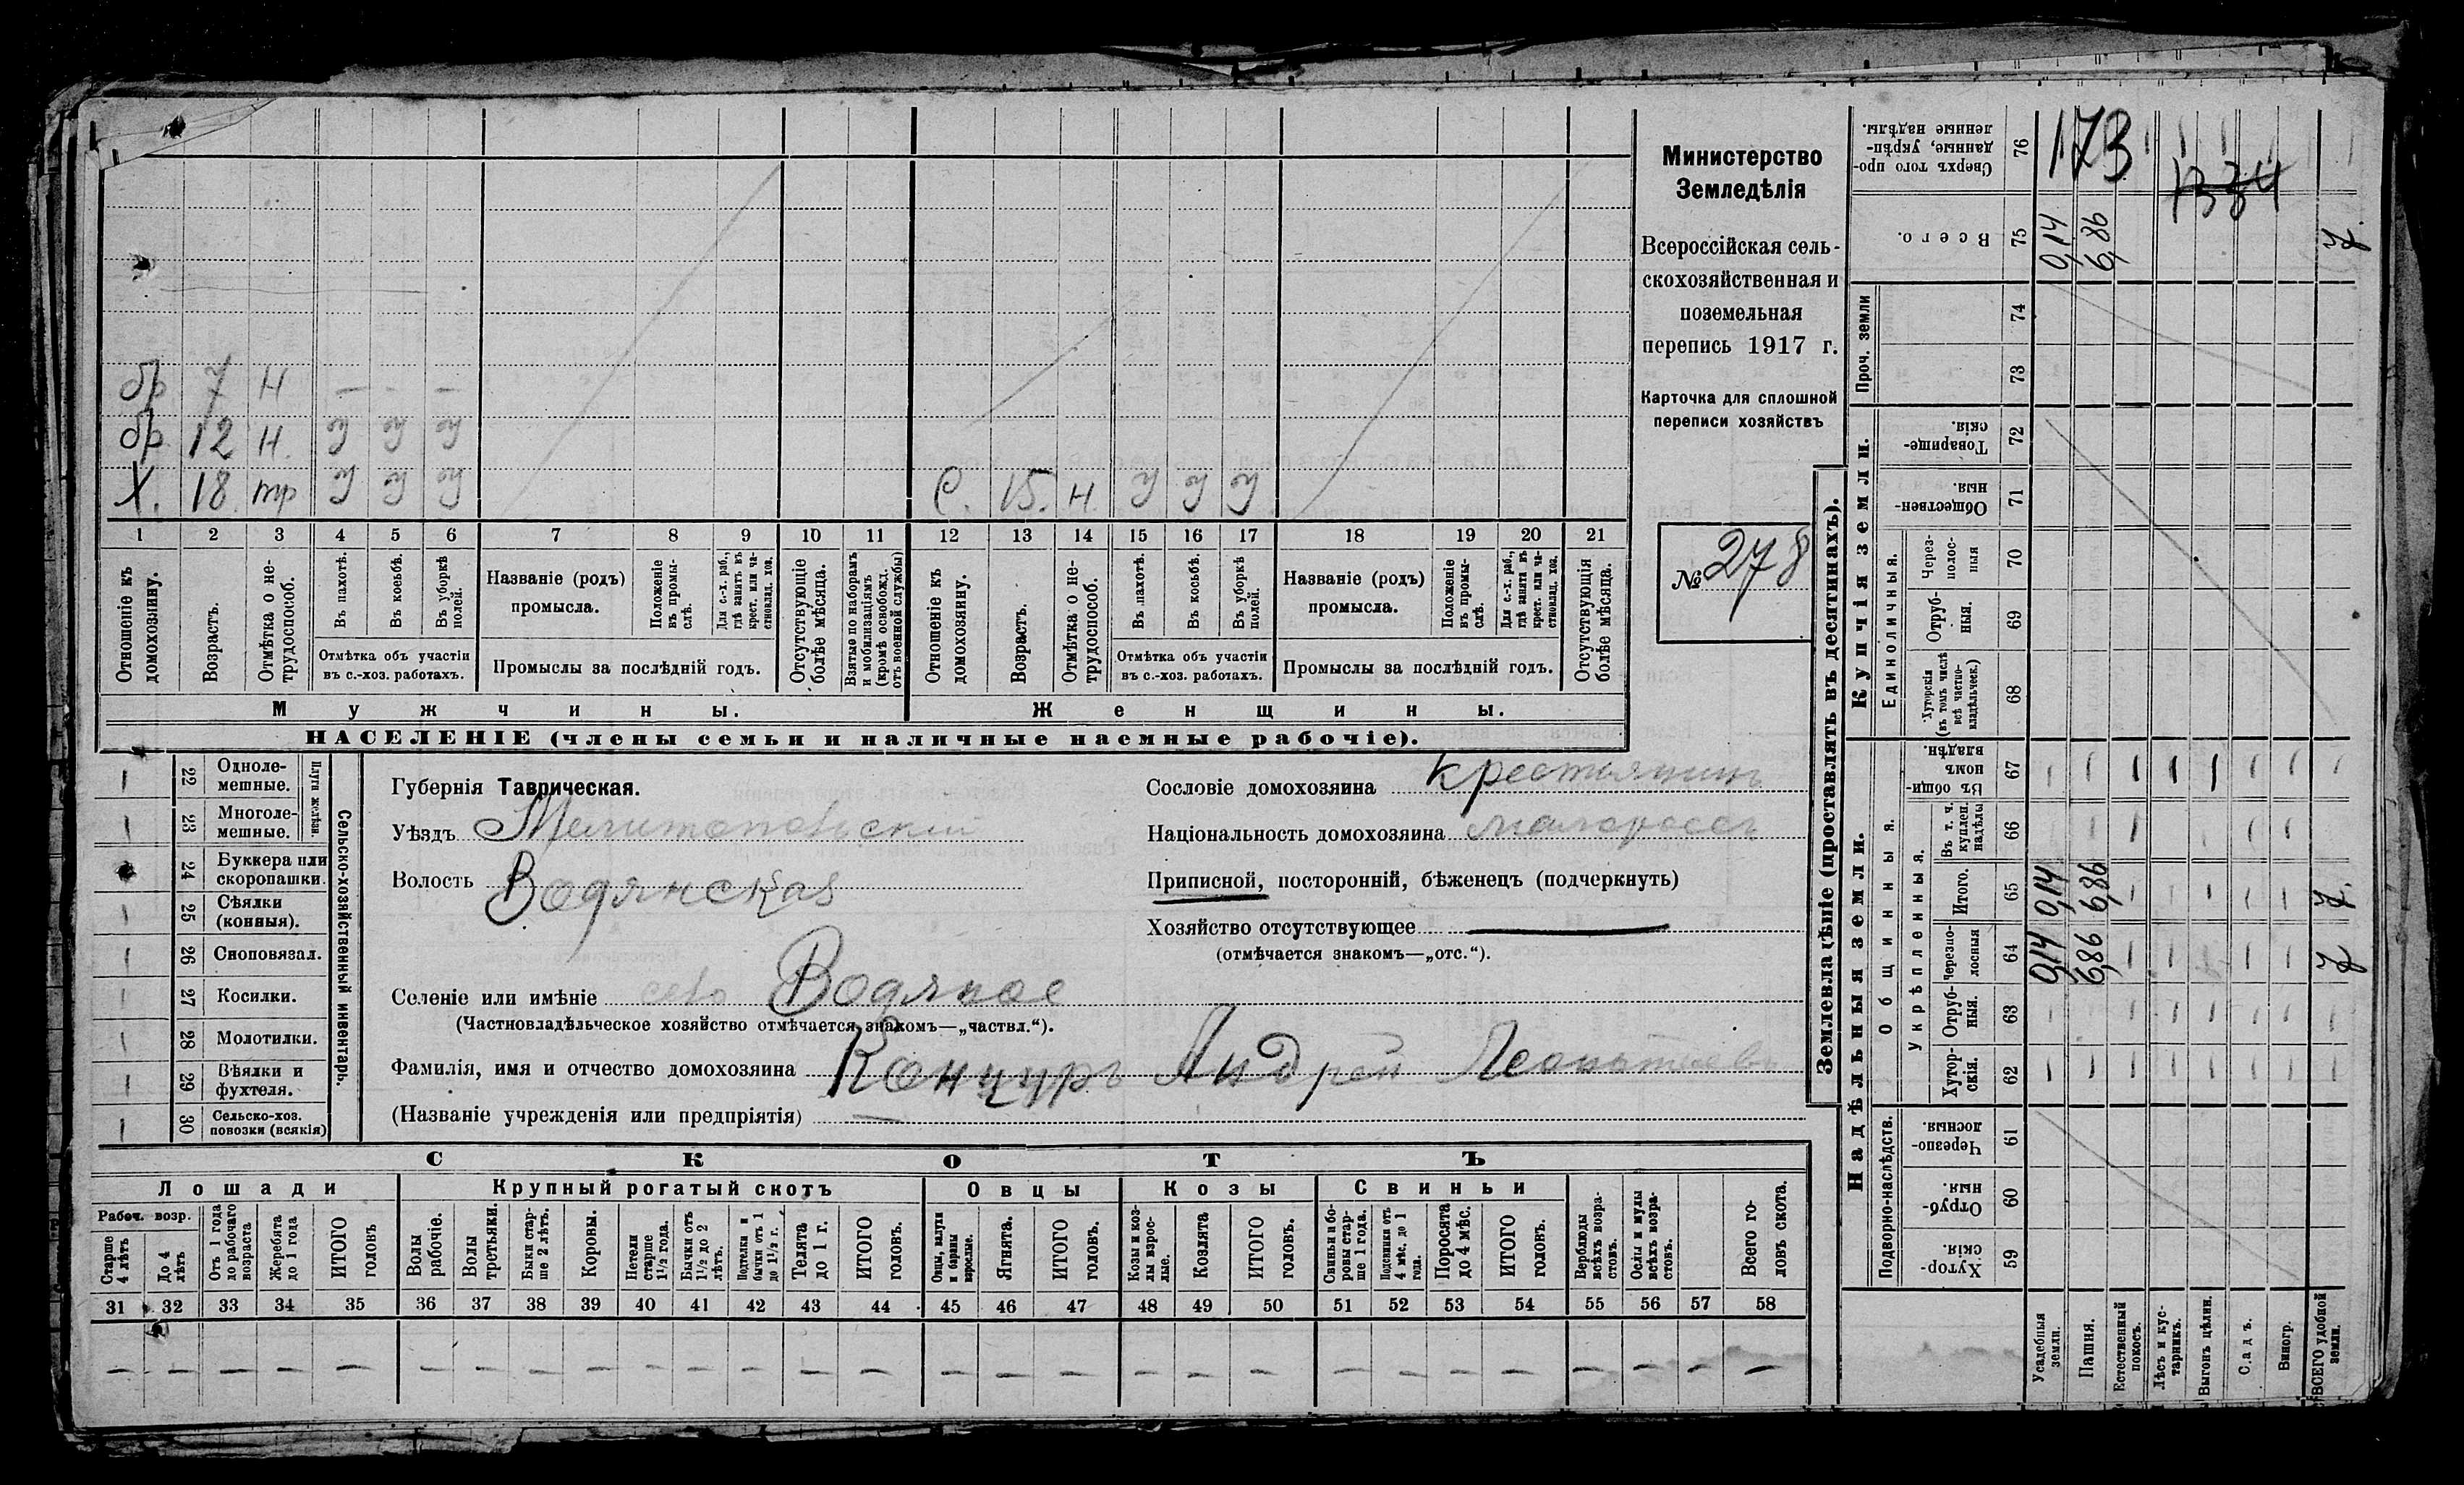 бр 7 н — - —
бр 12 н. у у у
Х. 18 тр у у у С. 15. н. у у у
1 2 3 4 5 6 7 8 9 10 11 12 13 14 15 16 17 18 19 20 21
Отношеніе къ домохозяину.
Возрастъ.
Отмѣтка о не-трудоспособ.
Въ пахотѣ.
Въ косьбѣ.
Въ уборкѣ полей.
Отмѣтка объ участіи
въ с.-хоз. работахъ.
Названіе (родъ)
промысла.
Положеніе въ промы-слѣ.
Для с.-х. раб., гдѣ занятъ въ крест. или ча-стновлад. хоз.
Промыслы за послѣдній годъ.
Отсутствующіе болѣе мѣсяца.
Взятые по наборамъ и мобилизаціямъ (кромѣ освобожд. отъ военной службы)
Отношеніе къ домохозяину.
Возрастъ.
Отмѣтка о не-трудоспособ.
Въ пахотѣ.
Въ косьбѣ.
Въ уборкѣ полей.
Отмѣтка объ участіи
въ с.-хоз. работахъ.
Названіе (родъ)
промысла.
Положеніе въ промы-слѣ.
Для с.-х. раб., гдѣ заняты въ крест. или ча-стновлад. хоз.
Промыслы за послѣдній годъ.
Отсутствующія болѣе мѣсяца.
Мужчины.
Женщины.
НАСЕЛЕНІЕ (члены семьи и наличные наемные рабочіе).
Министерство
Земледѣлія
Всероссійская сель-
скохозяйственная и
поземельная
перепись 1917 г.
Карточка для сплошной
переписи хозяйствъ
№ 278
Сельско-хозяйственный инвентарь.
Плуги желѣзн
22 Однолемешные.
23 Многолемешные.
24 Буккера или скоропашки.
25 Сѣялки (конныя).
26 Сноповязал.
27 Косилки.
28 Молотилки.
29 Вѣялки и фухтеля.
30 Сельско-хоз. повозки (всякія)
Губернія Таврическая.
Уѣздъ Мелитопольскій
Волость Водянская
Селеніе или имѣніе село Водяное
(Частновладѣльческое хозяйство отмѣчается знакомъ—„частвл.“).
Фамилія, имя и отчество домохозяина Канцуръ Андрей Леонтіевъ
(Названіе учрежденія или предпріятія) —
Сословіе домохозяина Крестьянинъ
Національность домохозяина малороссъ
Приписной, посторонній, бѣженецъ (подчеркнуть)
Хозяйство отсутствующее
(отмѣчается знакомъ—„отс.“).
СКОТЪ
Лошади
Крупный рогатый скотъ
Овцы
Козы
Свиньи
Рабоч. возр.
Старше 4 лѣтъ
До 4 лѣтъ
Отъ 1 года до рабочаго возраста
Жеребята до 1 года
ИТОГО головъ
Волы рабочіе.
Волы третьяки.
Быки стар-ше 2 лѣтъ.
Коровы.
Нетели старше 1½ года.
Бычки отъ 1½ до 2 лѣтъ.
Подтелки и бычки отъ 1 до 1½ г.
Телята до 1 г.
ИТОГО головъ.
Овцы, валухи и бараны взрослые.
Ягнята.
ИТОГО головъ.
Козы и коз-лы взрос-лые.
Козлята
ИТОГО головъ.
Свиньи и бо-ровы стар-ше 1 года.
Подсвинки отъ 4 мѣс. до 1 года.
Поросята до 4 мѣс.
ИТОГО головъ.
Верблюды всѣхъ возра-стовъ.
Ослы и мулы всѣхъ возра-стовъ.
Всего го-ловъ скота.
31 32 33 34 35 36 37 38 39 40 41 42 43 44 45 46 47 48 49 50 51 52 53 54 55 56 57 58
— — — — — — — — — — — — — — — — — — — — — — — — — — — —
Землевладѣніе (проставлять въ десятинахъ).
Надѣльныя земли.
Купчія земли.
Проч. земли
Подворно-наслѣдств.
Общинныя.
Укрѣпленныя.
Единоличныя.
76 Сверхъ того про-данные, укрѣп-ленные надѣлы.
75 Всего. 0,14 6,86 7.
74
73
72 Товарище-скія.
71 Обществен-ныя.
70 Через-полос-ныя
69 Отруб-ныя.
68 Хуторскія (въ томъ числѣ всѣ частно-владѣльческ.)
67 Въ общин-номъ владѣн.
66 Въ т. ч. куплен. надѣлы
65 Итого. 0,14 6,86 7.
64 Черезпо-лосныя 0,14 6,86 7
63 Отруб-ныя.
62 Хутор-скія.
61 Черезпо-лосныя.
60 Отруб-ныя.
59 Хутор-скія.
173
Усадебныя земли.
Пашня.
Естественный покосъ.
Лѣсъ и кус-тарникъ.
Выгонъ цѣлин.
Садъ.
Виногр.
ВСЕГО удобной земли.